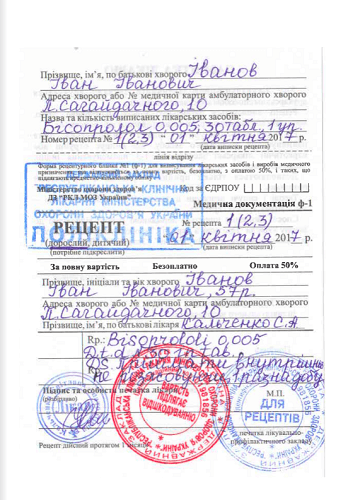 Прізвище, ім'я, по батькові хворого Іванов
Іван Іванович
Адреса хворого або № медичної карти амбулаторного хворого
П. Сагайдачного, 10
Назва та кількість виписаних лікарських засобів:
Бісопролол 0,005, 30 табл, 1 уп.
Номер рецепта № 1(2,3) "01" квітня 2017 р.
(дата виписки рецепта)
лінія відрізу
Форма рецептурного бланка №1 (ф-1) для виписування лікарських засобів і виробів медичного
Міністерство охорони здоров'я
Код за ЄДРПОУ
ДЗ "РКЛ МОЗ України"
Медична документація ф-1
РЕСПУБЛІКАНСЬКА КЛІНІЧНА
ЛІКАРНЯ МІНІСТЕРСТВА
ОХОРОНИ ЗДОРОВ'Я УКРАЇНИ
ПОЛІКЛІНІКА
РЕЦЕПТ
№ рецепта 1(2,3)
(дорослий, дитячий)
01 квітня 2017 р.
(потрібне підкреслити)
(дата виписки рецепта)
За повну вартість Безоплатно Оплата 50%
Прізвище, ініціали та рік хворого Іванов
Іван Іванович 57 р.
Адреса хворого або № медичної карти амбулаторного хворого
П. Сагайдачного, 10
Прізвище, ім'я, по батькові лікаря Кальченко С.А
Rp.: Bisoprololi 0,005
D.t.d. №30 in tab.
DS Приймати внутрішньо
Підпис та особиста печатка лікаря
(розбірливо)
ВАРТІСТЬ
ПІДЛЯГАЄ
ВІДШКОДУВАННЮ
М.П.
ДЛЯ
РЕЦЕПТІВ
печатка лікувально-
профілактичного закладу
Рецепт дійсний протягом 1 місяця